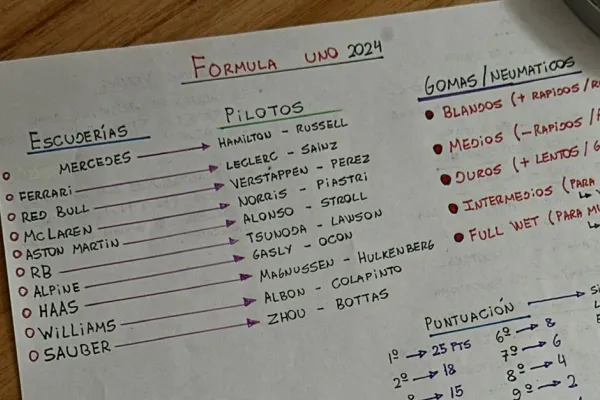 FORMULA UNO 2024
ESCUDERÍAS
PILOTOS
MERCEDES → HAMILTON - RUSSELL
FERRARI → LECLERC - SAINZ
RED BULL → VERSTAPPEN - PEREZ
McLAREN → NORRIS - PIASTRI
ASTON MARTIN → ALONSO - STROLL
RB → TSUNODA - LAWSON
ALPINE → GASLY - OCON
HAAS → MAGNUSSEN - HULKENBERG
WILLIAMS → ALBON - COLAPINTO
SAUBER → ZHOU - BOTTAS
GOMAS/NEUMATICOS
BLANDOS (+ RAPIDOS /
MEDIOS (- RAPIDOS /
DUROS (+ LENTOS /
INTERMEDIOS (PARA
FULL WET (PARA
PUNTUACIÓN →
1º → 25 PTS
2º → 18
º → 15
6º → 8
7º → 6
8º → 4
9º → 2